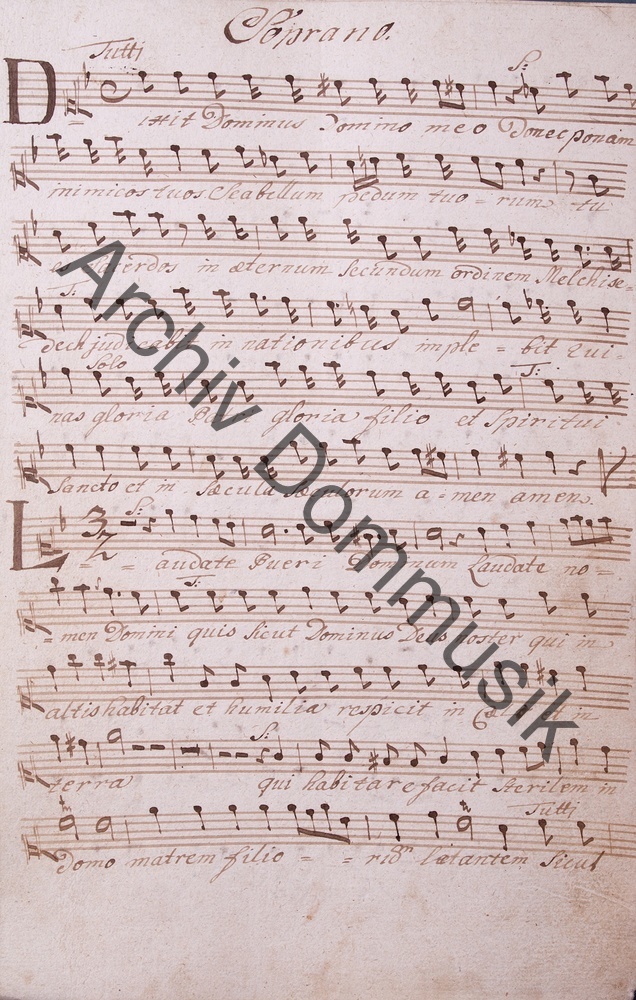 Soprano.
Tutti S:
Dixit Dominus Domino meo Donec ponam
inimicos tuos Scabellum pedum tuo = rum tu
es Sacerdos in æternum Secundum ordinem Melchise=
T:
dech judicabit in nationibus imple = bit rui-
Solo T:
nas gloria Patri gloria filio et Spiritui
Sancto et in Sæcula Sæculorum a-men amen.
S:
L = = audate Pueri Dominum Laudate no=
T:
=men Domini quis Sicut Dominus Deus noster qui in
altis habitat et humilia respicit in Cœlo et in
S:
terra qui habitare facit Sterilem in
Tutti
Domo matrem filio = = rum lætantem Sicut
Archiv Dommusik